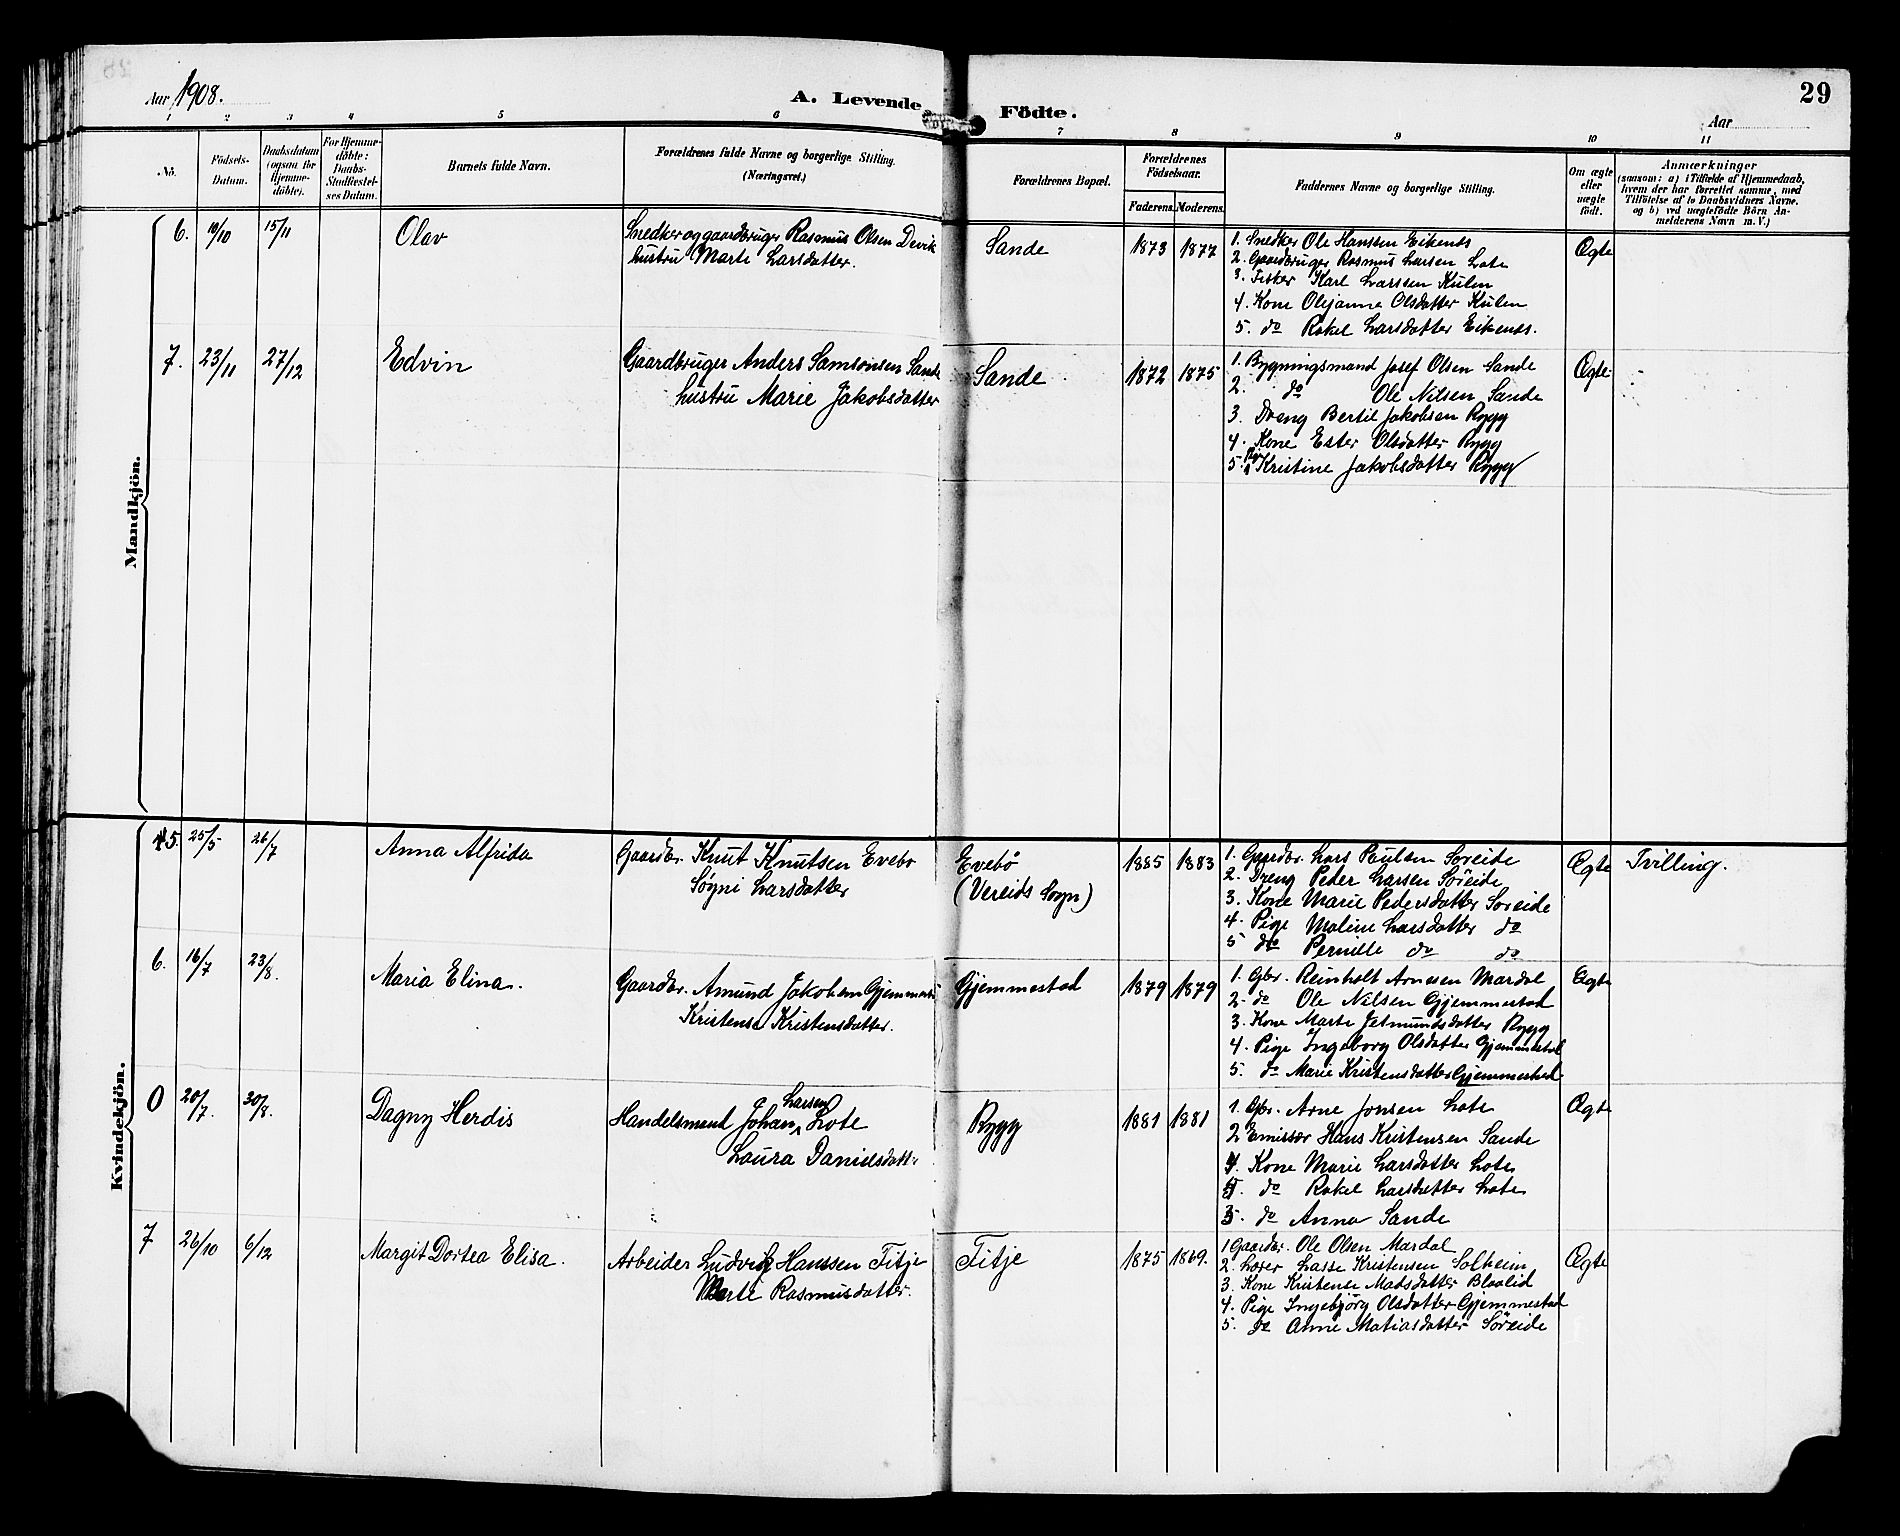 Aar 1908.
A. Levende Födte.
29
Aar
1 2 3 4 5 6 7 8 9 10 11
No.
Födsels-Datum.
Daabsdatum (ogsaa for Hjemme-döbte).
For Hjemme-döbte: Daabs-Stadfæstel-ses Datum.
Barnets fulde Navn.
Forældrenes fulde Navne og borgerlige Stilling.
(Næringsvei.)
Forældrenes Bopæl.
Forældrenes Födselsaar.
Faderens. Moderens.
Faddernes Navne og borgerlige Stilling.
Om ægte eller uægte födt.
Anmærkninger
(saasom: a) i Tilfælde af Hjemmedaab,
hvem der har forrettet samme, med
Tilföielse af to Daabsvidners Navne.
og b) ved uægtefödte Börn An-
melderens Navn m.V.)
Mandkjön.
6. 10/10 15/11 Olav
Snedker og gaardbruger Rasmus Olsen Devik
hustru Marte Larsdatter.
Sande 1873 1877
1. Snedker Ole Hanssen Eikenes
2. Gaardbruger Rasmus Larsen Lote
3. Fisker Karl Larssen Kulen
4. Kone Olejanna Olsdatter Kulen
5. do Rakel Larsdatter Eikenes.
Ægte
7. 23/11 27/12 Edvin
Gaardbruger Anders Samsonsen Sande
hustru Marie Jakobsdatter
Sande 1872 1875
1. Bygningsmand Josef Olsen Sande
2. do Ole Nilsen Sande
3. Dreng Bertil Jakobsen Rygg
4. Kone Ester Olsdatter Rygg
5. Pige Kristine Jakobsdatter Rygg
Ægte
Kvindekjön.
5. 25/5 26/7 Anna Alfrida
Gaardbr. Knut Knutsen Evebø
Søgni Larsdatter
Evebö
(Vereids Sogn)
1885 1883
1. Gaardbr. Lars Paulsen Soreide
2. Dreng Peder Larsen Söreide
3. Kone Marie Pedersdatter Soreide
4. Pige Maline Larsdatter do
5 do Pernille do do
Ægte Tvilling.
6. 16/7 23/8. Maria Elina.
Gaardbr. Amund Jakobsen Gjemmestad
Kristense Kristensdatter.
Gjemmestad 1879 1879
1. Gbr. Reinholt Arnesen Mardal
2. do Ole Nilsen Gjemmestad
3. Kone Marte Jetmundsdatter Rygg
4. Pige Ingeborg Olsdatter Gjemmestad
5. do Marie Kristensdatter Gjemmestad
Ægte
0 20/7. 30/8. Dagny Herdis
Handelsmand Johan Larsen Lote
Laura Danielsdatt.
Rygg 1881 1881
1. Gbr. Arne Jonsen Lote
2 Emissær Hans Kristensen Sande
4. Kone Marie Larsdatter Lote
5. do Rakel Larsdatter Lote
3. do Anna Sande
Ægte
7 26/10 6/12 Margit Dortea Elisa.
Arbeider Ludvik Hanssen Fitje
Marte Rasmusdatter.
Fitje 1875 1869.
1 Gaardbr. Ole Olsen Mardal
2. Lærer Lasse Kristensen Solheim
3. Kone Kristense Madsdatter Blaalid
4. Pige Ingebjörg Olsdatter Gjemmestad
5. do Anne Matiasdatter Söreide
Ægte